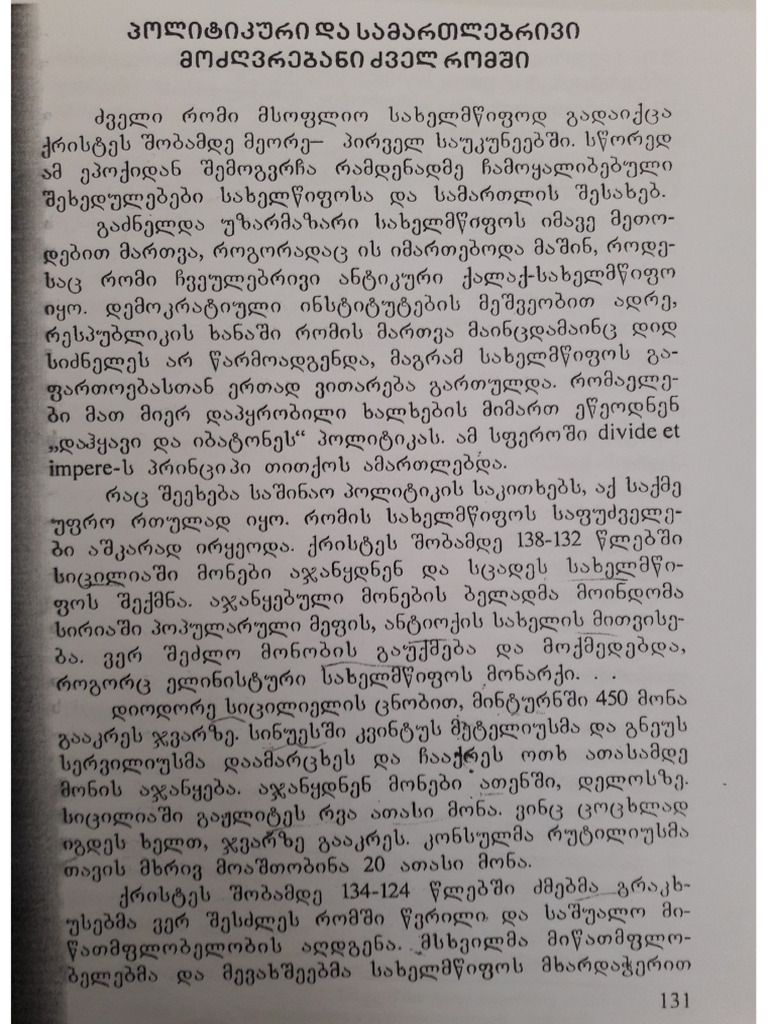 პოლიტიკური და სამართლებრივი
მოძღვრებანი ძველ რომში
ძველი რომი მსოფლიო სახელმწიფოდ გადაიქცა
ქრისტეს შობამდე მეორე– პირველ საუკუნეებში. სწორედ
ამ ეპოქიდან შემოგვრჩა რამდენადმე ჩამოყალიბებული
შეხედულებები სახელწიფოსა და სამართლის შესახებ.
გაძნელდა უზარმაზარი სახელმწიფოს იმავე მეთო-
დებით მართვა, როგორადაც ის იმართებოდა მაშინ, როდე-
საც რომი ჩვეულებრივი ანტიკური ქალაქ-სახელმწიფო
იყო. დემოკრატიული ინსტიტუტების მეშვეობით ადრე,
რესპუბლიკის ხანაში რომის მართვა მაინცდამაინც დიდ
სიძნელეს არ წარმოადგენდა, მაგრამ სახელმწიფოს გა-
ფართოებასთან ერთად ვითარება გართულდა. რომაელე-
ბი მათ მიერ დაპყრობილი ხალხების მიმართ ეწეოდნენ
„დაჰყავი და იბატონეს“ პოლიტიკას. ამ სფეროში divide et
impere-ს პრინციპი თითქოს ამართლებდა.
რაც შეეხება საშინაო პოლიტიკის საკითხებს, აქ საქმე
უფრო რთულად იყო. რომის სახელმწიფოს საფუძველე-
ბი აშკარად ირყეოდა. ქრისტეს შობამდე 138-132 წლებში
სიცილიაში მონები აჯანყდნენ და სცადეს სახელმწი-
ფოს შექმნა. აჯანყებული მონების ბელადმა მოინდომა
სირიაში პოპულარული მეფის, ანტიოქის სახელის მითვისე-
ბა. ვერ შეძლო მონობის გაუქმება და მოქმედებდა,
როგორც ელინისტური სახელმწიფოს მონარქი. . .
დიოდორე სიცილიელის ცნობით, მინტურნში 450 მონა
გააკრეს ჯვარზე. სინუესში კვინტუს მეტელიუსმა და გნეუს
სერვილიუსმა დაამარცხეს და ჩააქრეს ოთხ ათასამდე
მონის აჯანყება. აჯანყდნენ მონები ათენში, დელოსზე.
სიცილიაში გაჟლიტეს რვა ათასი მონა. ვინც ცოცხლად
იგდეს ხელთ, ჯვარზე გააკრეს. კონსულმა რუტილიუსმა
თავის მხრივ მოაშთობინა 20 ათასი მონა.
ქრისტეს შობამდე 134-124 წლებში ძმებმა გრაკხ-
უსებმა ვერ შესძლეს რომში წვრილი და საშუალო მი-
წათმფლობელობის აღდგენა. მსხვილმა მიწათმფლო-
ბელებმა და მევახშეებმა სახელმწიფოს მხარდაჭერით
131